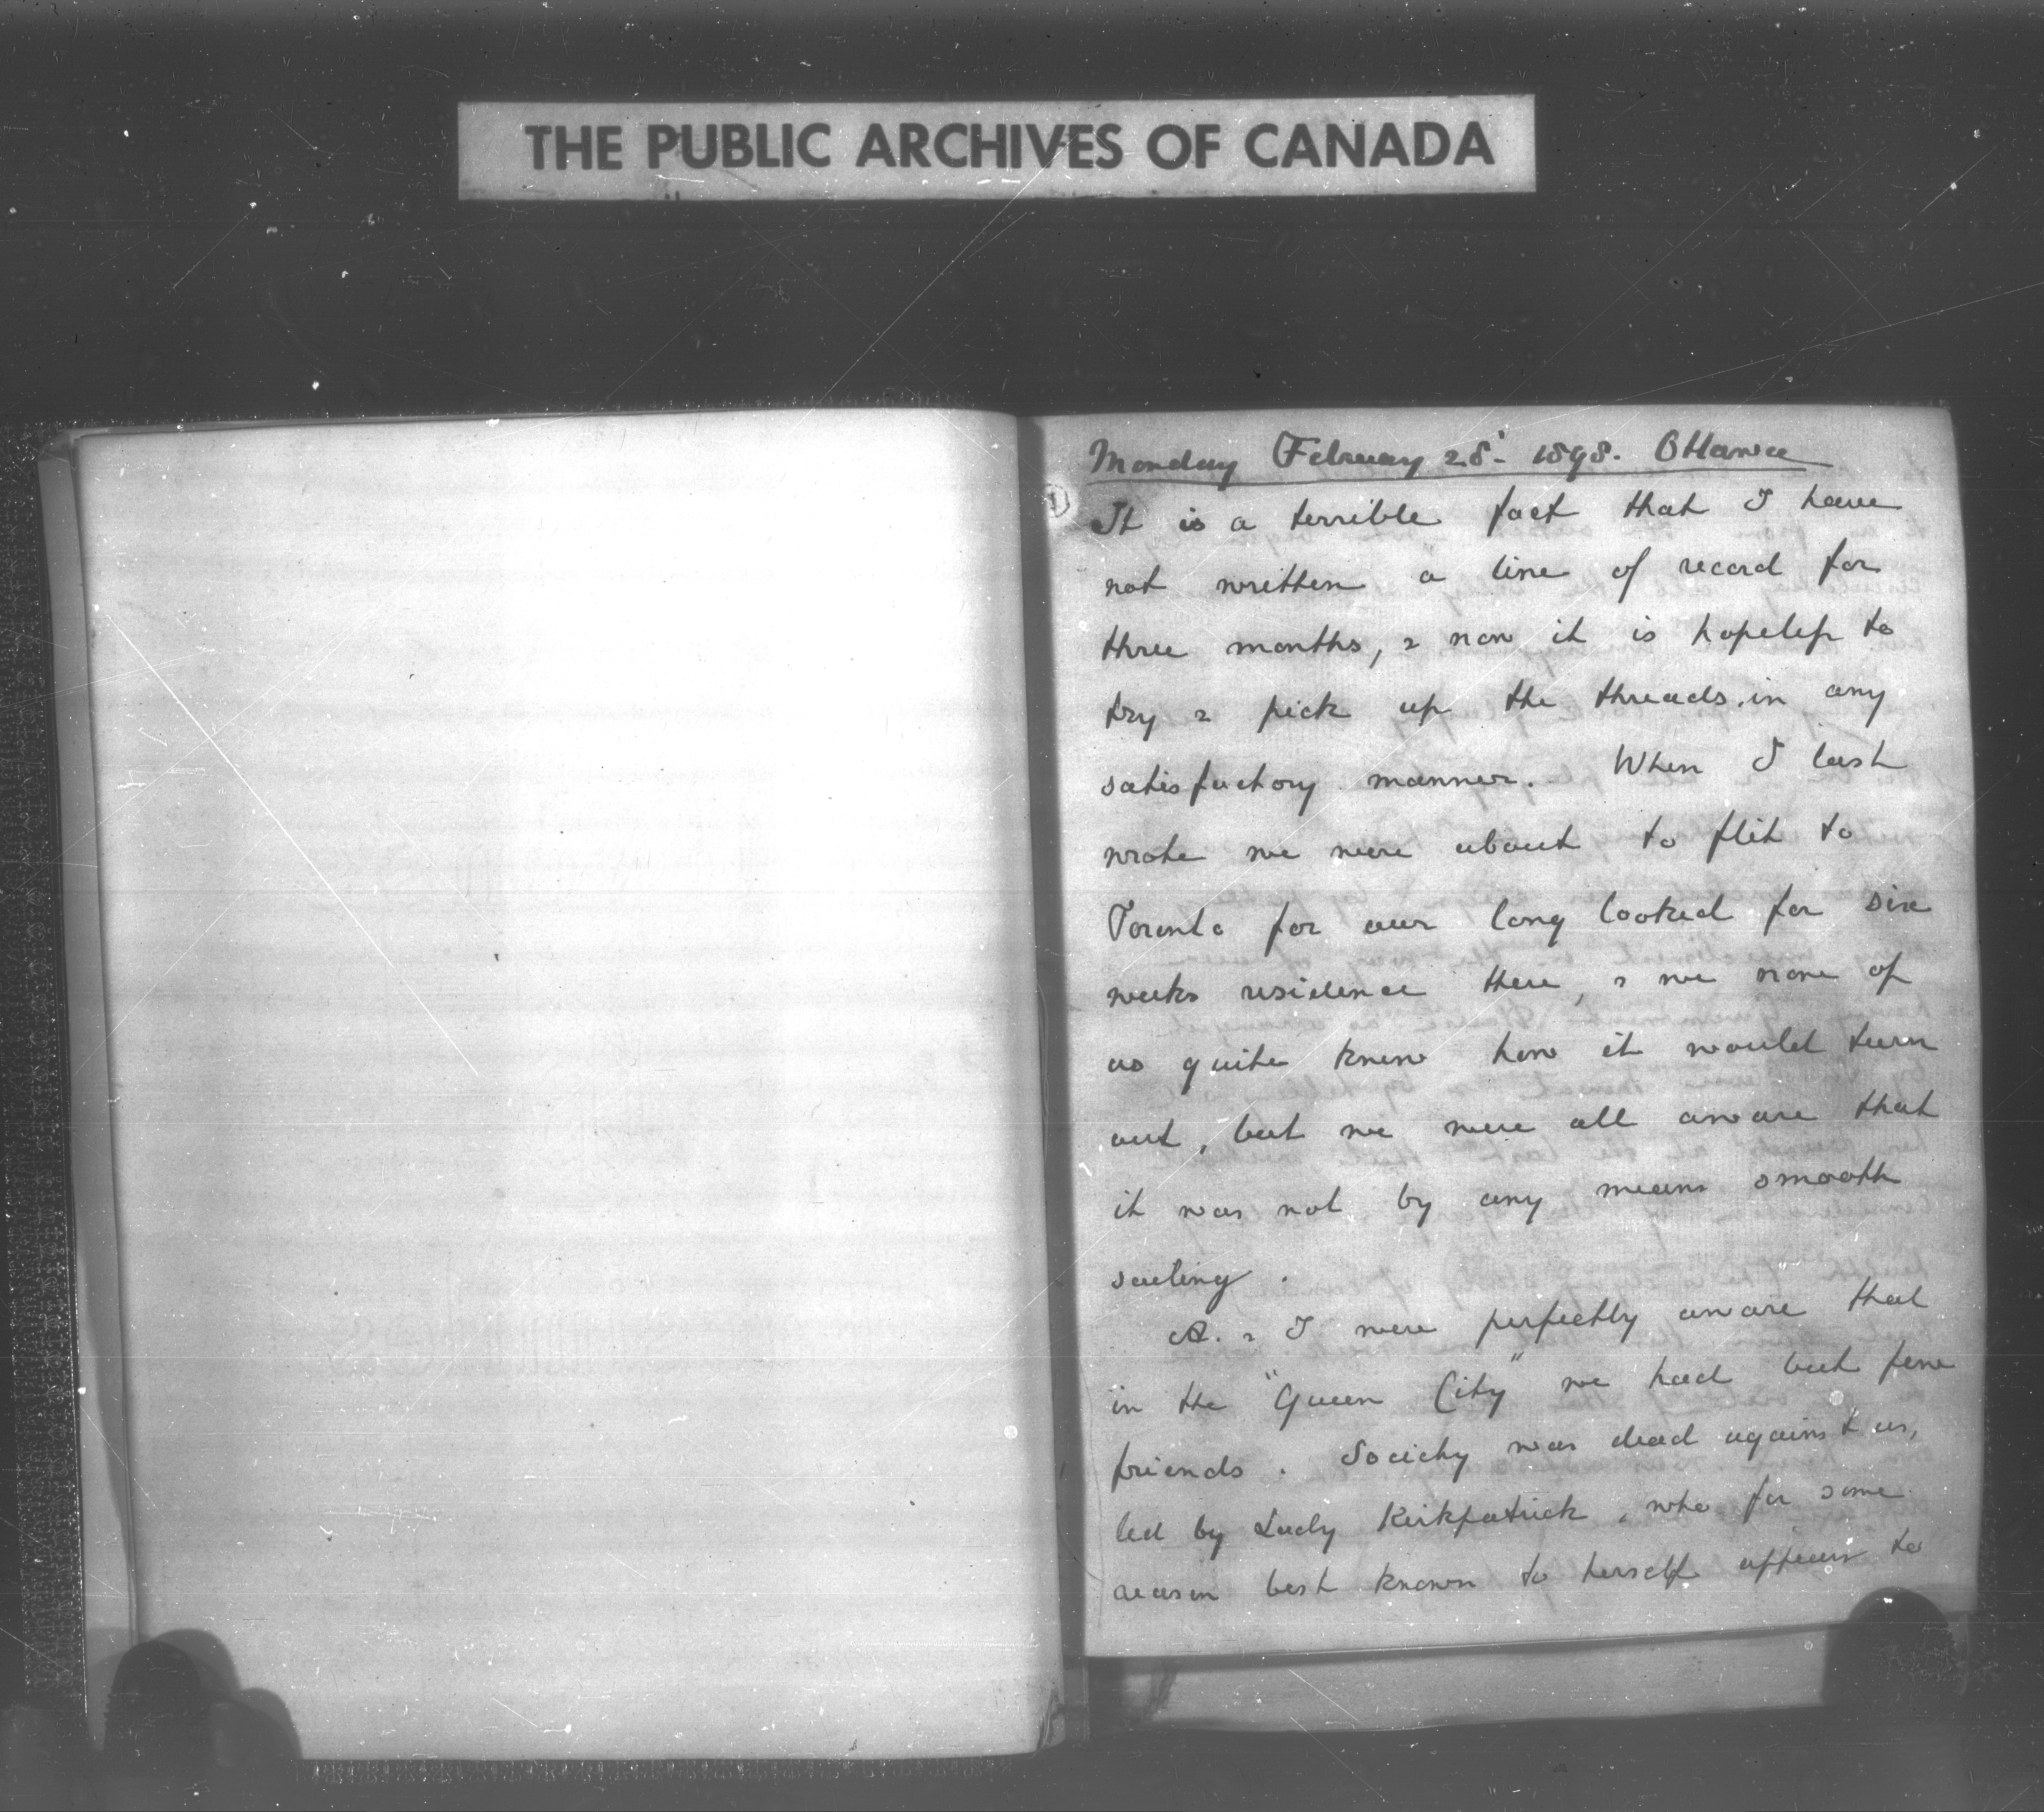 THE PUBLIC ARCHIVES OF CANADA
Monday February 28' - 1898. Ottawa
1)
It is a terrible fact that I have
not written a line of record for
three months, & now it is hopeless to
try & pick up the threads in any
satisfactory manner. When I last
wrote we were about to flit to
Toronto for our long looked for six
weeks residence there, & we none of
us quite knew how it would turn
out, but we were all aware that
it was not by any means smooth
sailing.
A. & I were perfectly aware that
in the "Queen City" we had but few
friends. Society was dead against us,
led by Lady Kirkpatrick, who for some
reason best known to herself appears to